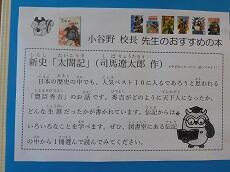 小谷野 校長 先生のおすすめの本
新史「太閤記」(司馬遼太郎 作)
日本の歴史の中でも、人気ベスト10に入るであろうと思われる
「豊臣秀吉」のお話です。秀吉がどのように天下人になったか、
どんな生涯だったかが書かれています。伝記からは
いろいろなことを学べます。ぜひ、図書室にある伝記
の中から1冊選んで読んでみてください。